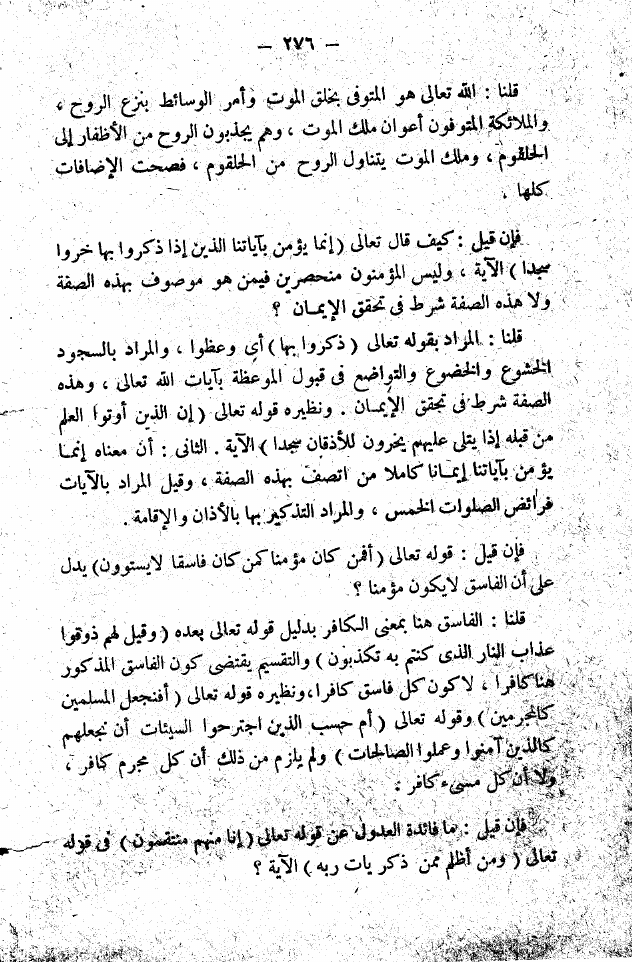 — ٢٧٦ —
قلنا : الله تعالى هو المتوفى بخلق الموت وأمر الوسائط بنزع الروح ،
والملائكة المتوفون أعوان ملك الموت ، وهم يجذبون الروح من الأظفار إلى
الحلقوم ، وملك الموت يتناول الروح من الحلقوم ، فصحت الإضافات
كلها .
فإن قيل : كيف قال تعالى ( إنما يؤمن بآياتنا الذين إذا ذكروا بها خروا
سجدا ) الآية ، وليس المؤمنون منحصرين فيمن هو موصوف بهذه الصفة
ولا هذه الصفة شرط فى تحقق الإيمـان ؟
قلنا : المراد بقوله تعالى ( ذكروا بها ) أى وعظوا ، والمراد بالسجود
الخشوع والخضوع والتواضع فى قبول الموعظة بآيات الله تعالى ، وهذه
الصفة شرط فى تحقق الإيمـان . ونظيره قوله تعالى ( إن الذين أوتوا العلم
من قبله إذا يتلى عليهم يخرون للأذقان سجدا ) الآية . الثانى : أن معناه إنمـا
يؤمن بآياتنا إيمـانا كاملا من اتصف بهذه الصفة ، وقيل المراد بالآيات
فرائض الصلوات الخمس ، والمراد التذكير بها بالأذان والإقامة .
فإن قيل : قوله تعالى ( أفمن كان مؤمنا كمن كان فاسقا لايستوون) يدل
على أن الفاسق لايكون مؤمنا ؟
قلنا : الفاسق هنا بمعنى الكافر بدليل قوله تعالى بعده ( وقيل لهم ذوقوا
عذاب النار الذى كنتم به تكذبون ) والتقسيم يقتضى كون الفاسق المذكور
هنا كافرا ، لا كون كل فاسق كافرا ، ونظيره قوله تعالى ( أفنجعل المسلمين
كالمجرمين ) وقوله تعالى ( أم حسب الذين اجترحوا السيئات أن نجعلهم
كالذين آمنوا وعملوا الصالحات ) ولم يلزم من ذلك أن كل مجرم كافر ،
ولا أن كل مسىء كافر .
فإن قيل : ما فائدة العدول عن قوله تعالى ( إنا منهم منتقمون ) فى قوله
تعالى ( ومن أظلم ممن ذكر بآيات ربه ) الآية ؟